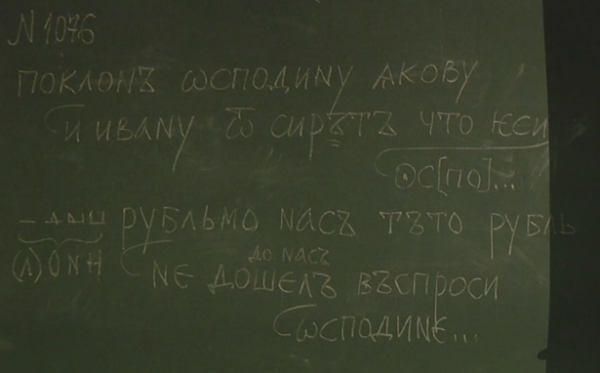 N 1076
поклонъ ѡсподину ꙗкову
и ивану ѿ сирѣтъ что ѥси
ос[по]...
рубльмо насъ тъто рубль
(л)они
до насъ
не дошелъ въспроси
ѡсподине...